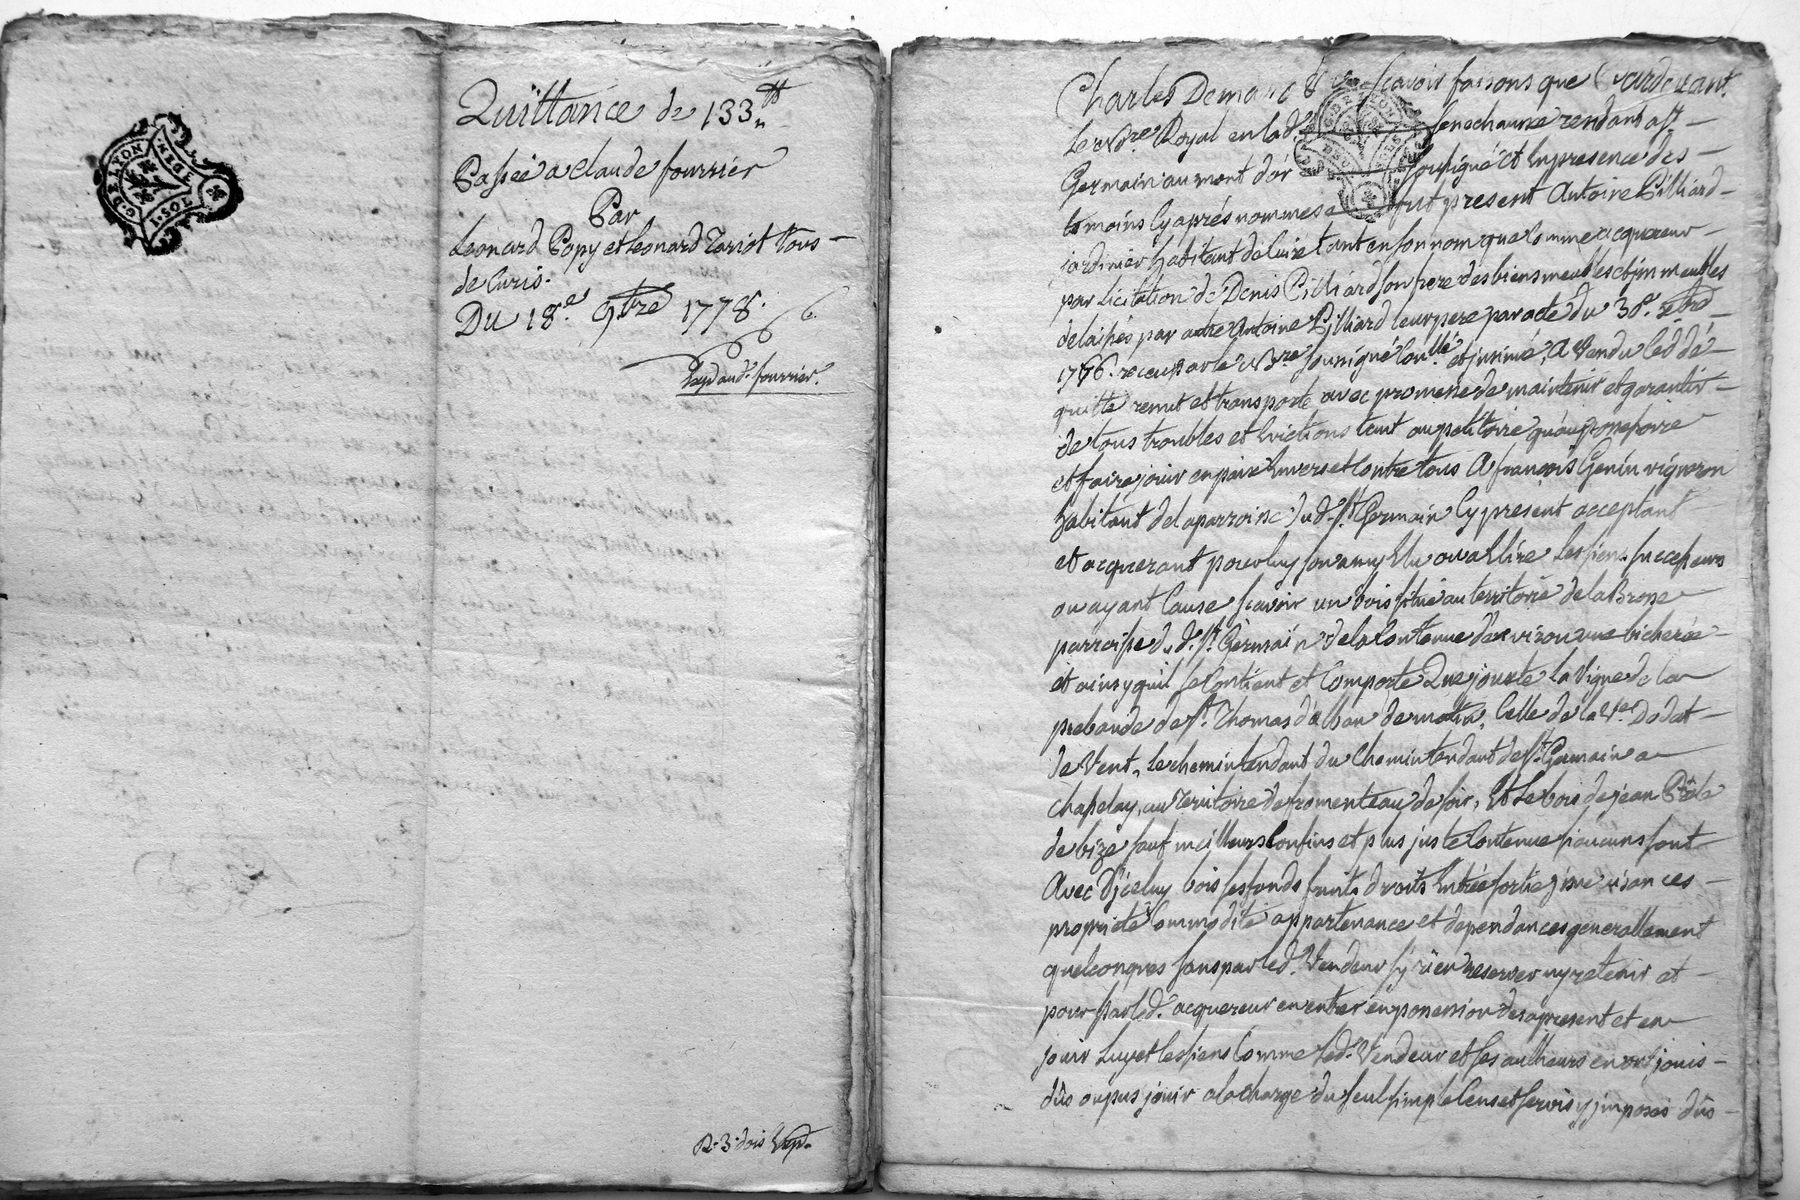 G. DE LYON
2.S. 10D.
Quittance de 133ᵗᵗ
Passée a Claude fourrier
Par
Leonard Papy et Leonard Toriot tous
de Curis.
Du 18.e 9bre 1778.
Exp.d aud. fourrier.
R. 3. dois Exp.
Charles Demon scavoir faisons que Pardevant
Le No.re Royal en lad. senechaussé rendant a St
Germain au mont d'or soussigné et En presence des
temoins Cy aprés nommes fut present Antoine Pilliard
jardinier habitant de Curis tant en son nom que Comme acquereur
par Licitation de Denis Pilliard son frere des biens meubles et immeubles
delaissés par autre Antoine Pilliard leur pere par acte du 30.e
1776. receu par le No.re soussigné Conllé et insinué, A Vendu Ced dé
quitté remet et transporte avec promesse de maintenir et garantir
de tous troubles et Evictions tant au petitoire qu'au possessoire
et faire jouir en paix Envers et Contre tous A françois Genin vigneron
habitant de la parroisse dud. St Germain Cy present acceptant
et acquerant pour luy son amy Elu ou a Elire Les siens successeurs
ou ayant Cause scavoir un bois situé au territoire de la Brosse
parroisse dud. St Germain de la Contenue d'environ une bicherée
et ainsy quil se Contient et Comporte Que jouxte la Vigne de la
prebande de St Thomas d'alban de matin, Celle de la Ve. Dodat
de Vent, Le chemin tendant du Chemin tendant de St. Germain a
Chapelay, au Territoire de fromenteau de soir, Et Le bois de jean
de bize sauf meilleurs Confins et plus juste Contenue si aucuns sont
Avec D'jceluy bois ses fonds fruits droits Entrée sortie jssue usances
proprieté Commodité appartenance et dependances generallement
quelconques sans par led. Vendeur sy rien reserver ny retenir et
pour par led. acquereur en entrer en possession des apresent et en
jouir Luy et les siens Comme led. Vendeur et ses autheurs en ont jouis
dûs ou pus jouir a la charge du seul simple Cens et servis y jmposés dûs